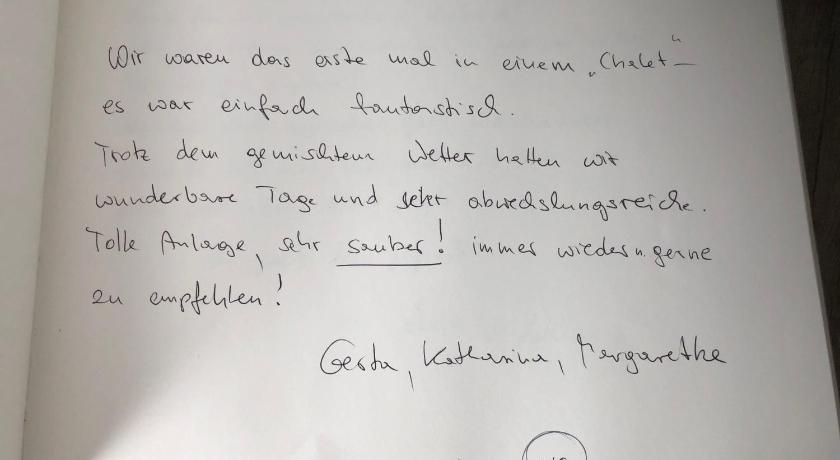 Wir waren das erste mal in einem „Chalet“ –
es war einfach fantastisch.
Trotz dem gemischtem Wetter hatten wir
wunderbare Tage und sehr abwechslungsreiche.
Tolle Anlage, sehr sauber! immer wieder u. gerne
zu empfehlen!
Gerta, Katharina, Margarethe